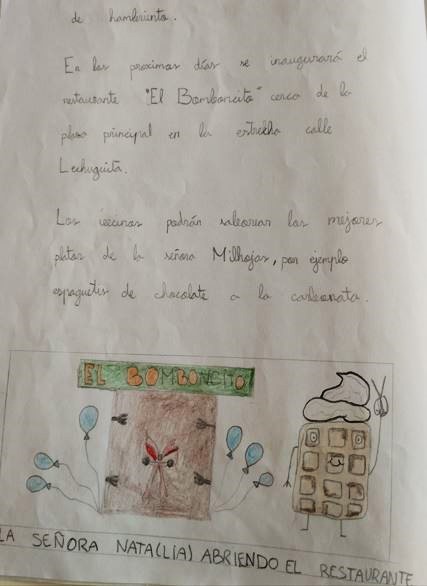 de hambriento.
En los proximos días se inaugurará el
restaurante "El Bomboncito" cerca de la
plaza principal en la estrecha calle
Lechuguita.
Los vecinos podrán saborear los mejores
platos de la señora Milhojas, por ejemplo
espaguetis de chocolate a la carbonata.
EL BOMBONCITO
LA SEÑORA NATA(LIA) ABRIENDO EL RESTAURANTE